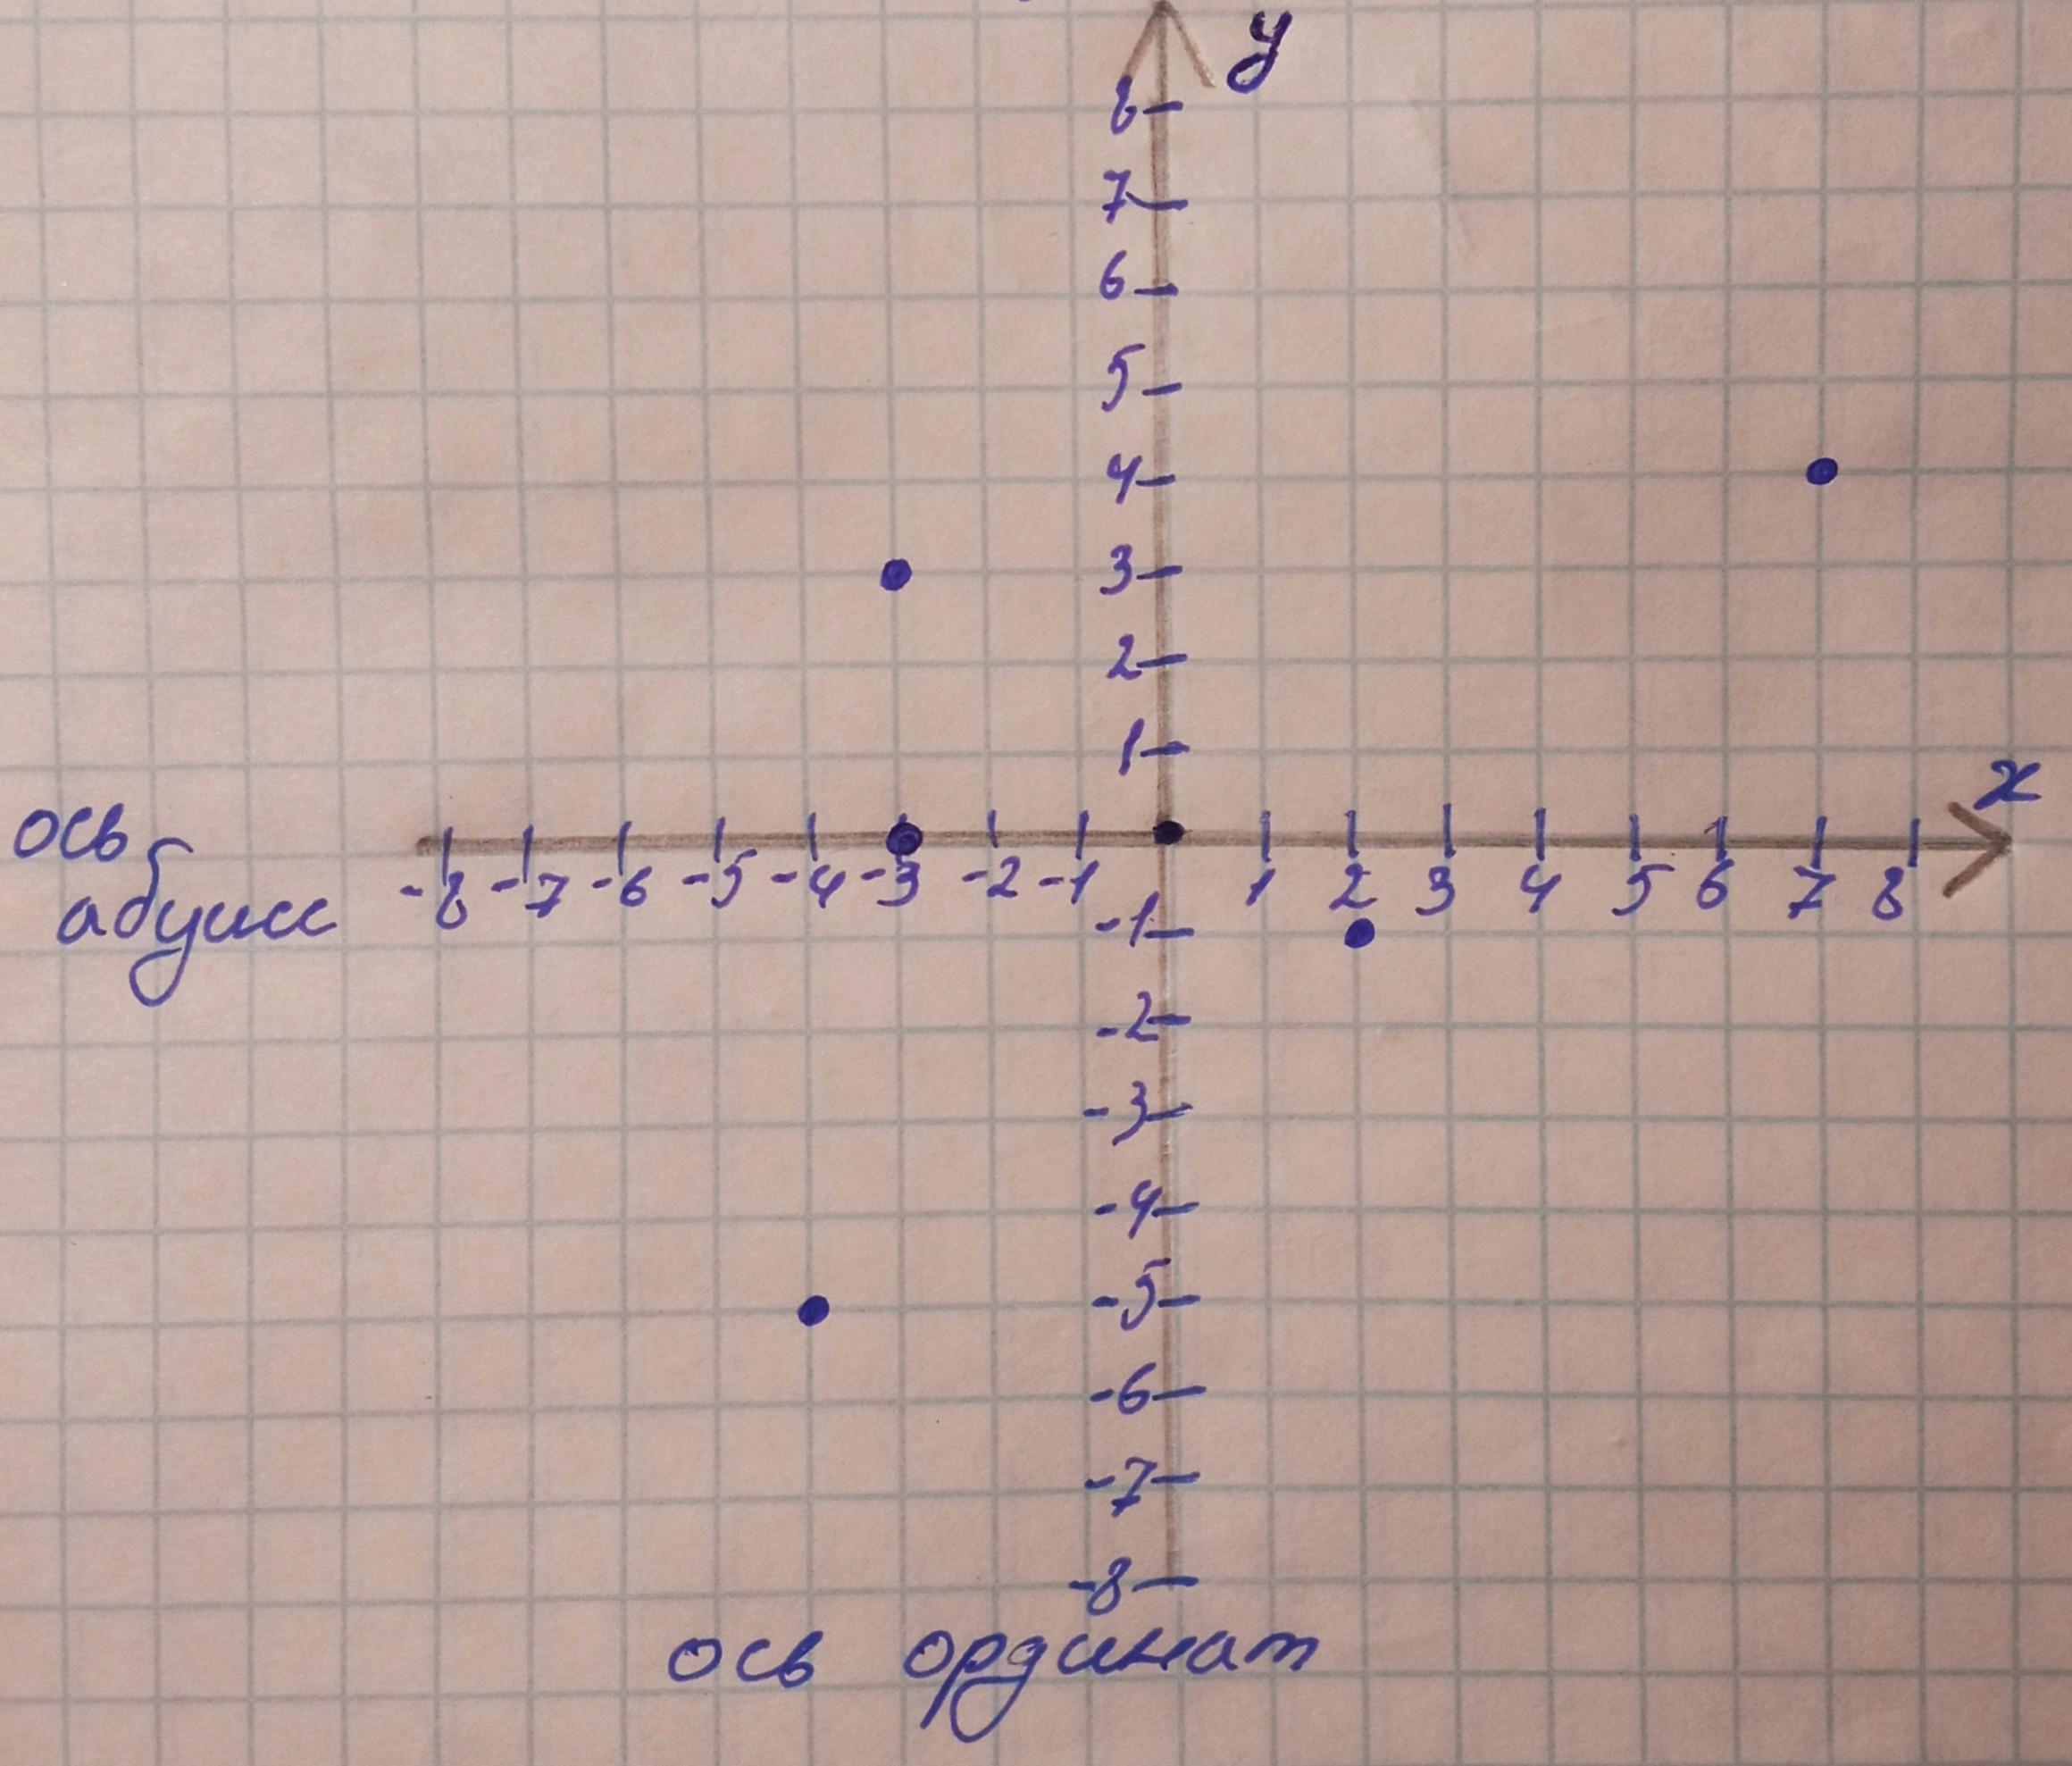 y
8
7
6
5
4
3
2
1
x
ось
абцисс
-8 -7 -6 -5 -4 -3 -2 -1 1 2 3 4 5 6 7 8
-1
-2
-3
-4
-5
-6
-7
-8
ось ординат